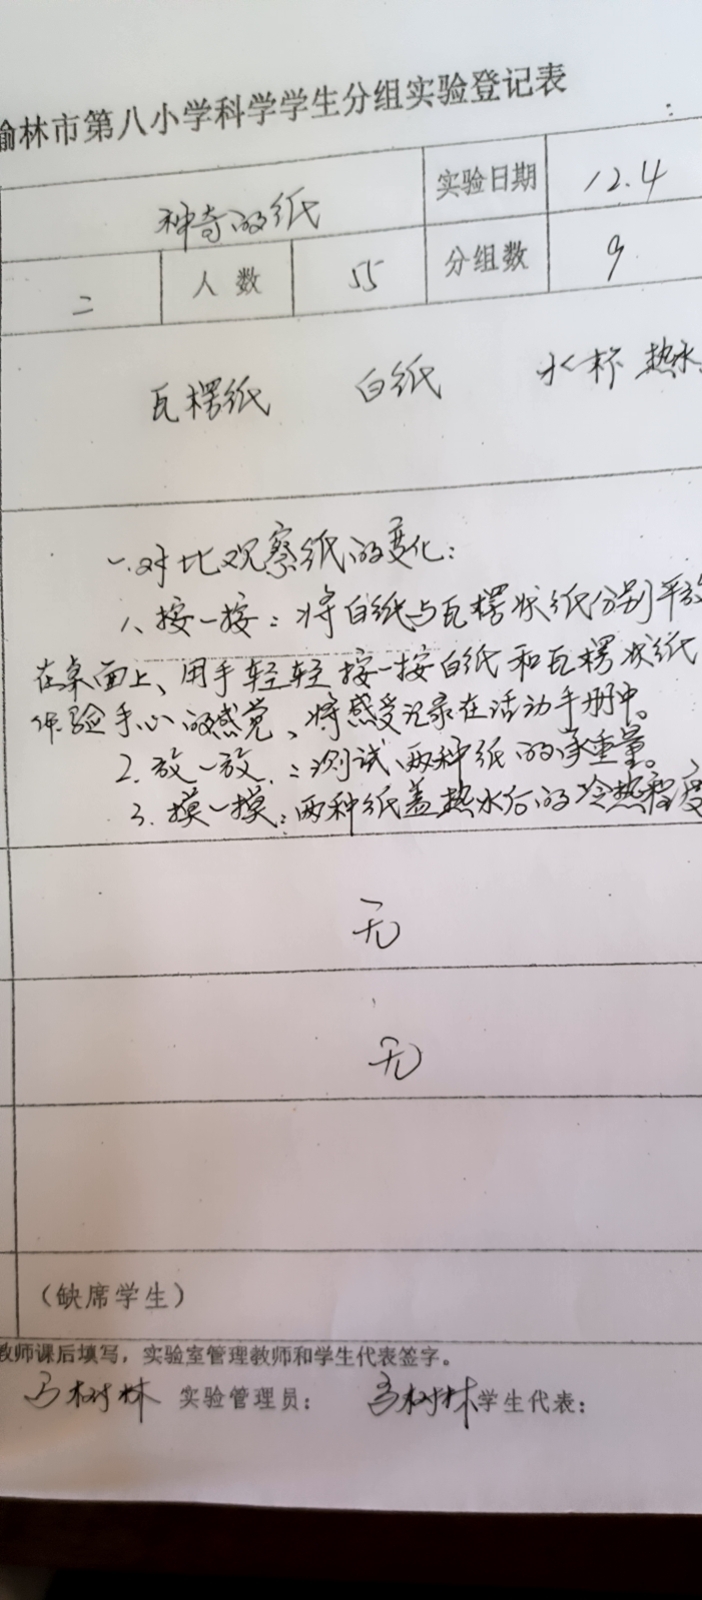 榆林市第八小学科学学生分组实验登记表
神奇的纸 实验日期 12.4
二 人数 55 分组数 9
瓦楞纸 白纸 水杯 热水
一.对比观察纸的变化：
1、按一按：将白纸与瓦楞状纸分别平放
在桌面上、用手轻轻按一按白纸和瓦楞状纸
体验手心的感觉、将感受记录在活动手册中。
2.放一放：测试两种纸的承重量。
3.摸一摸：两种纸盖热水后的冷热程度
无
无
（缺席学生）
教师课后填写，实验室管理教师和学生代表签字。
马树林 实验管理员： 马树林 学生代表：